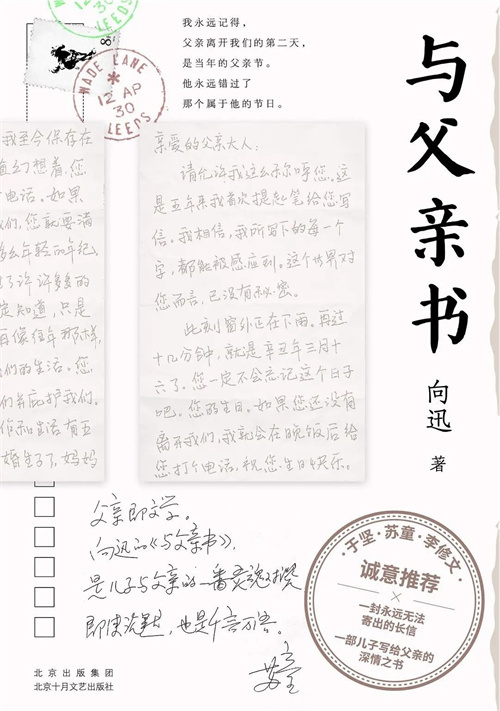 我永远记得，
父亲离开我们的第二天，
是当年的父亲节。
他永远错过了
那个属于他的节日。
与父亲书
向迅 著
8
WADE LANE
12 AP
30
LEEDS
30
LEEDS
我至今保存在
直幻想着，您
电话。如果
我们，您就要满
多么年轻的年纪。
了许许多多的
定知道，只是
再像往年那样，
我们的生活。您
们并庇护我们。
作和生活有五
婚生子了，妈妈
亲爱的父亲大人：
请允许我这么称呼您。这
是五年来我首次提起笔给您写
信。我相信，我所写下的每一个
字，都能被感应到。这个世界对
您而言，已没有秘密。
此刻窗外正在下雨。再过
十几分钟，就是辛丑年三月十
六了。您一定不会忘记这个日子
吧。您的生日。如果您还没有
离开我们，我就会在晚饭后给
您打个电话，祝您生日快乐。
父亲即文学。
向迅的《与父亲书》，
是儿子与父亲的一番灵魂对谈
即使沉默，也是千言万语。
苏童
于坚·苏童·李修文
诚意推荐
一封永远无法
寄出的长信
一部儿子写给父亲的
深情之书
北京出版集团
北京十月文艺出版社